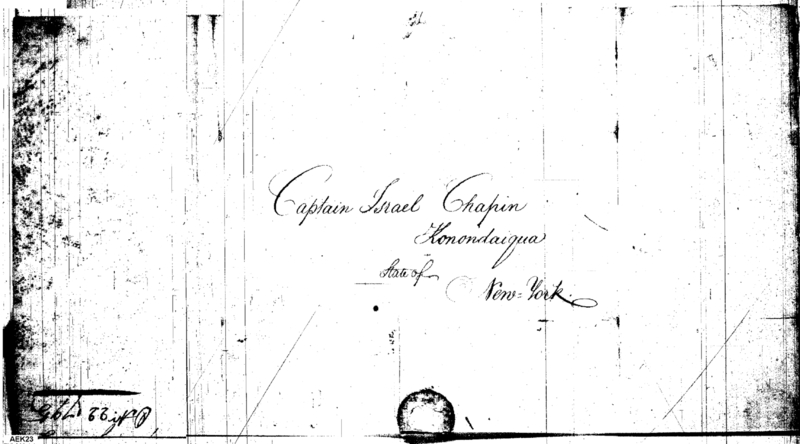 Captain Israel Chapin
Konondaiqua
State of
New=York.
22 1795
AEK23